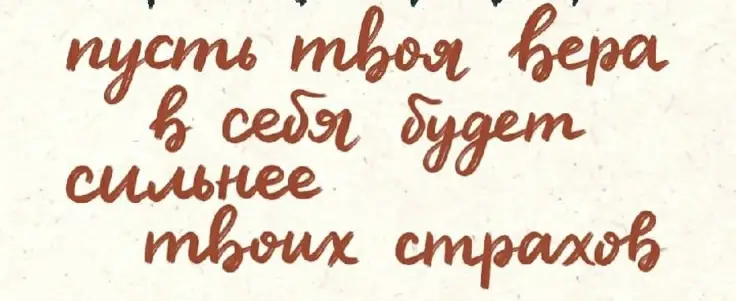 пусть твоя вера
в себя будет
сильнее
твоих страхов